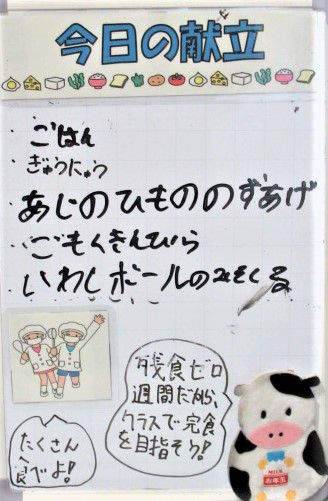 今日の献立
ごはん
ぎゅうにゅう
あじのひもののずあげ
ごもくきんぴら
いわしボールのみそしる
残食ゼロ
週間だから、
クラスで完食
を目指そう!
たくさん
食べよ!
MILK